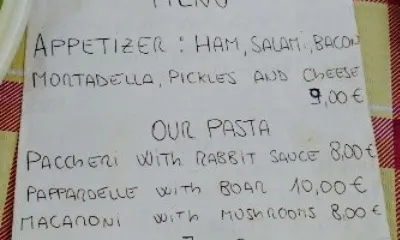 MENU
APPETIZER : HAM, SALAMI, BACON
MORTADELLA, PICKLES AND CHEESE
9,00€
OUR PASTA
PACCHERI WITH RABBIT SAUCE 8,00€
PAPPARDELLE WITH BOAR 10,00€
MACARONI WITH MUSHROOMS 8,00€